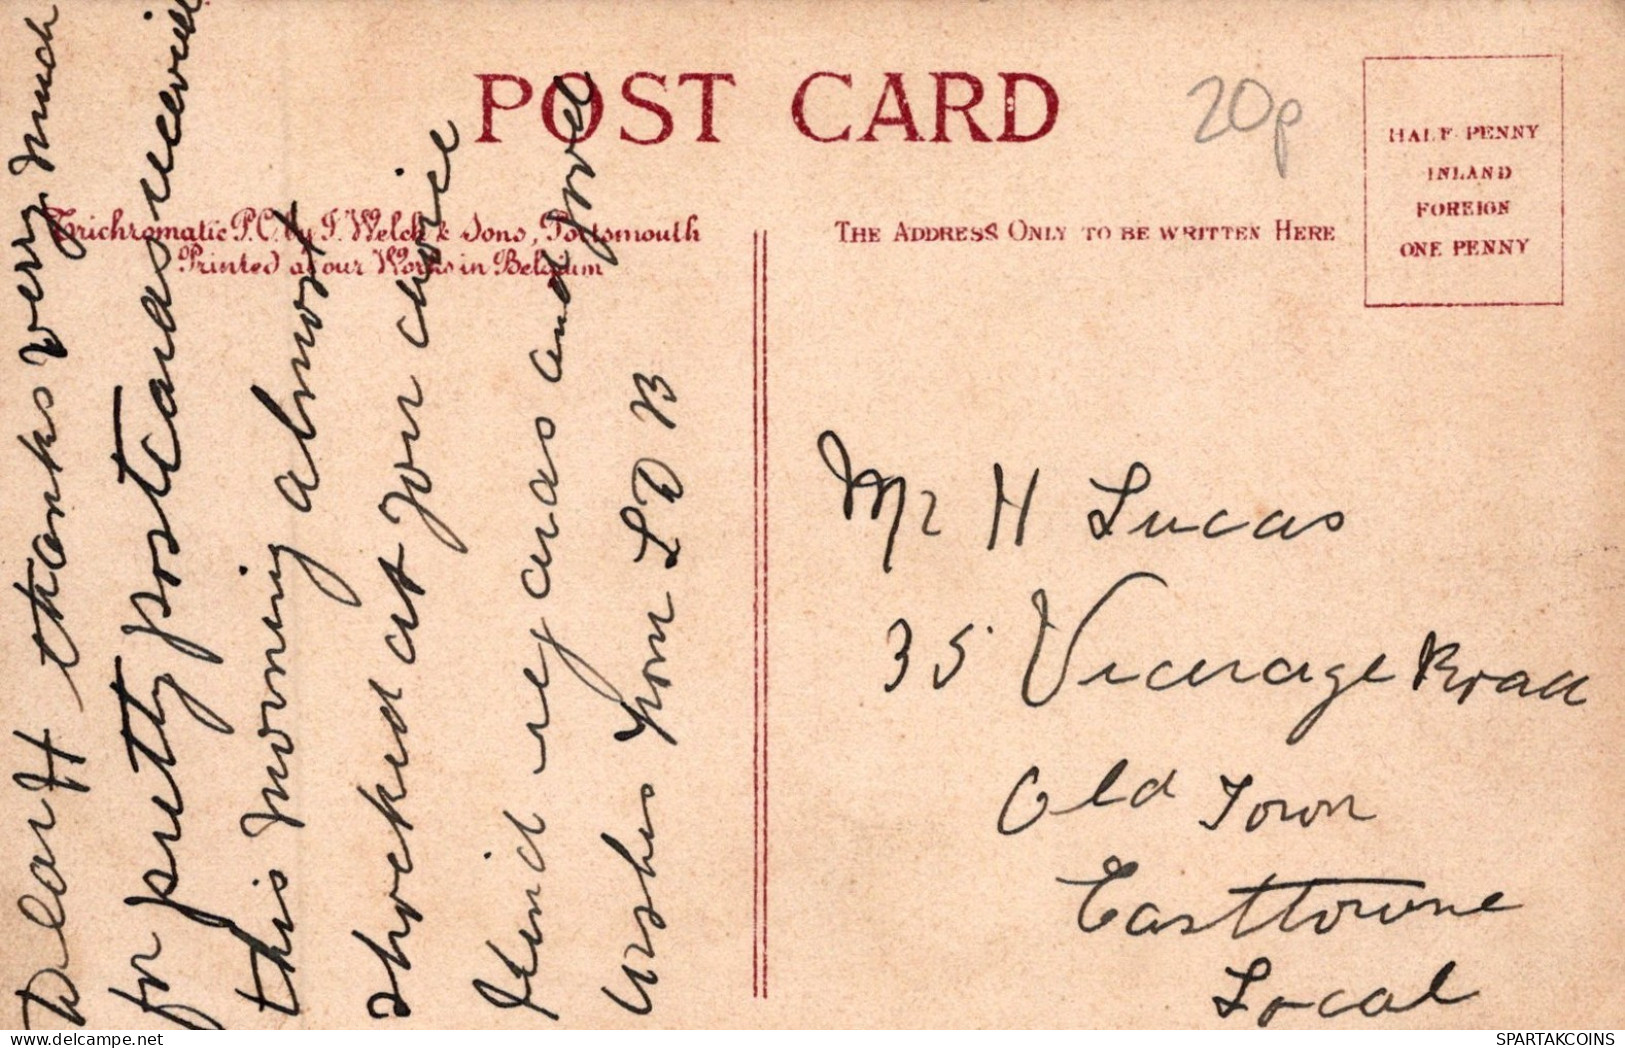 POST CARD
20p
HALF PENNY
INLAND
FOREIGN
ONE PENNY
Trichromatic P.C. by J. Welch & Sons, Portsmouth
Printed at our Works in Belgium
THE ADDRESS ONLY TO BE WRITTEN HERE
Dear H thanks very much
for pretty postcards received
this morning almost
shocked at your choice
Kind regards and good
wishes from L D B
Mr H Lucas
35 Vicarage Road
Old Town
Easttowne
Local
SPARTAKCOINS
delcampe.net